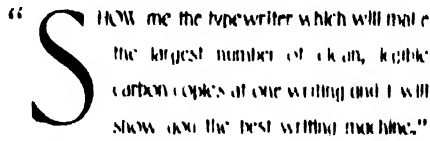 “SHOW me the typewriter which will make
the largest number of clean, legible
carbon copies at one writing and I will
show you the best writing machine.”